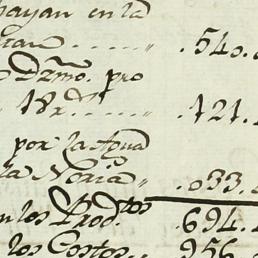 bayan en la
.540.
o Dzmo. pro
18r. .121.
por la Agua
la Noria .033.
en los Prodtos .694.
los Costos .956.